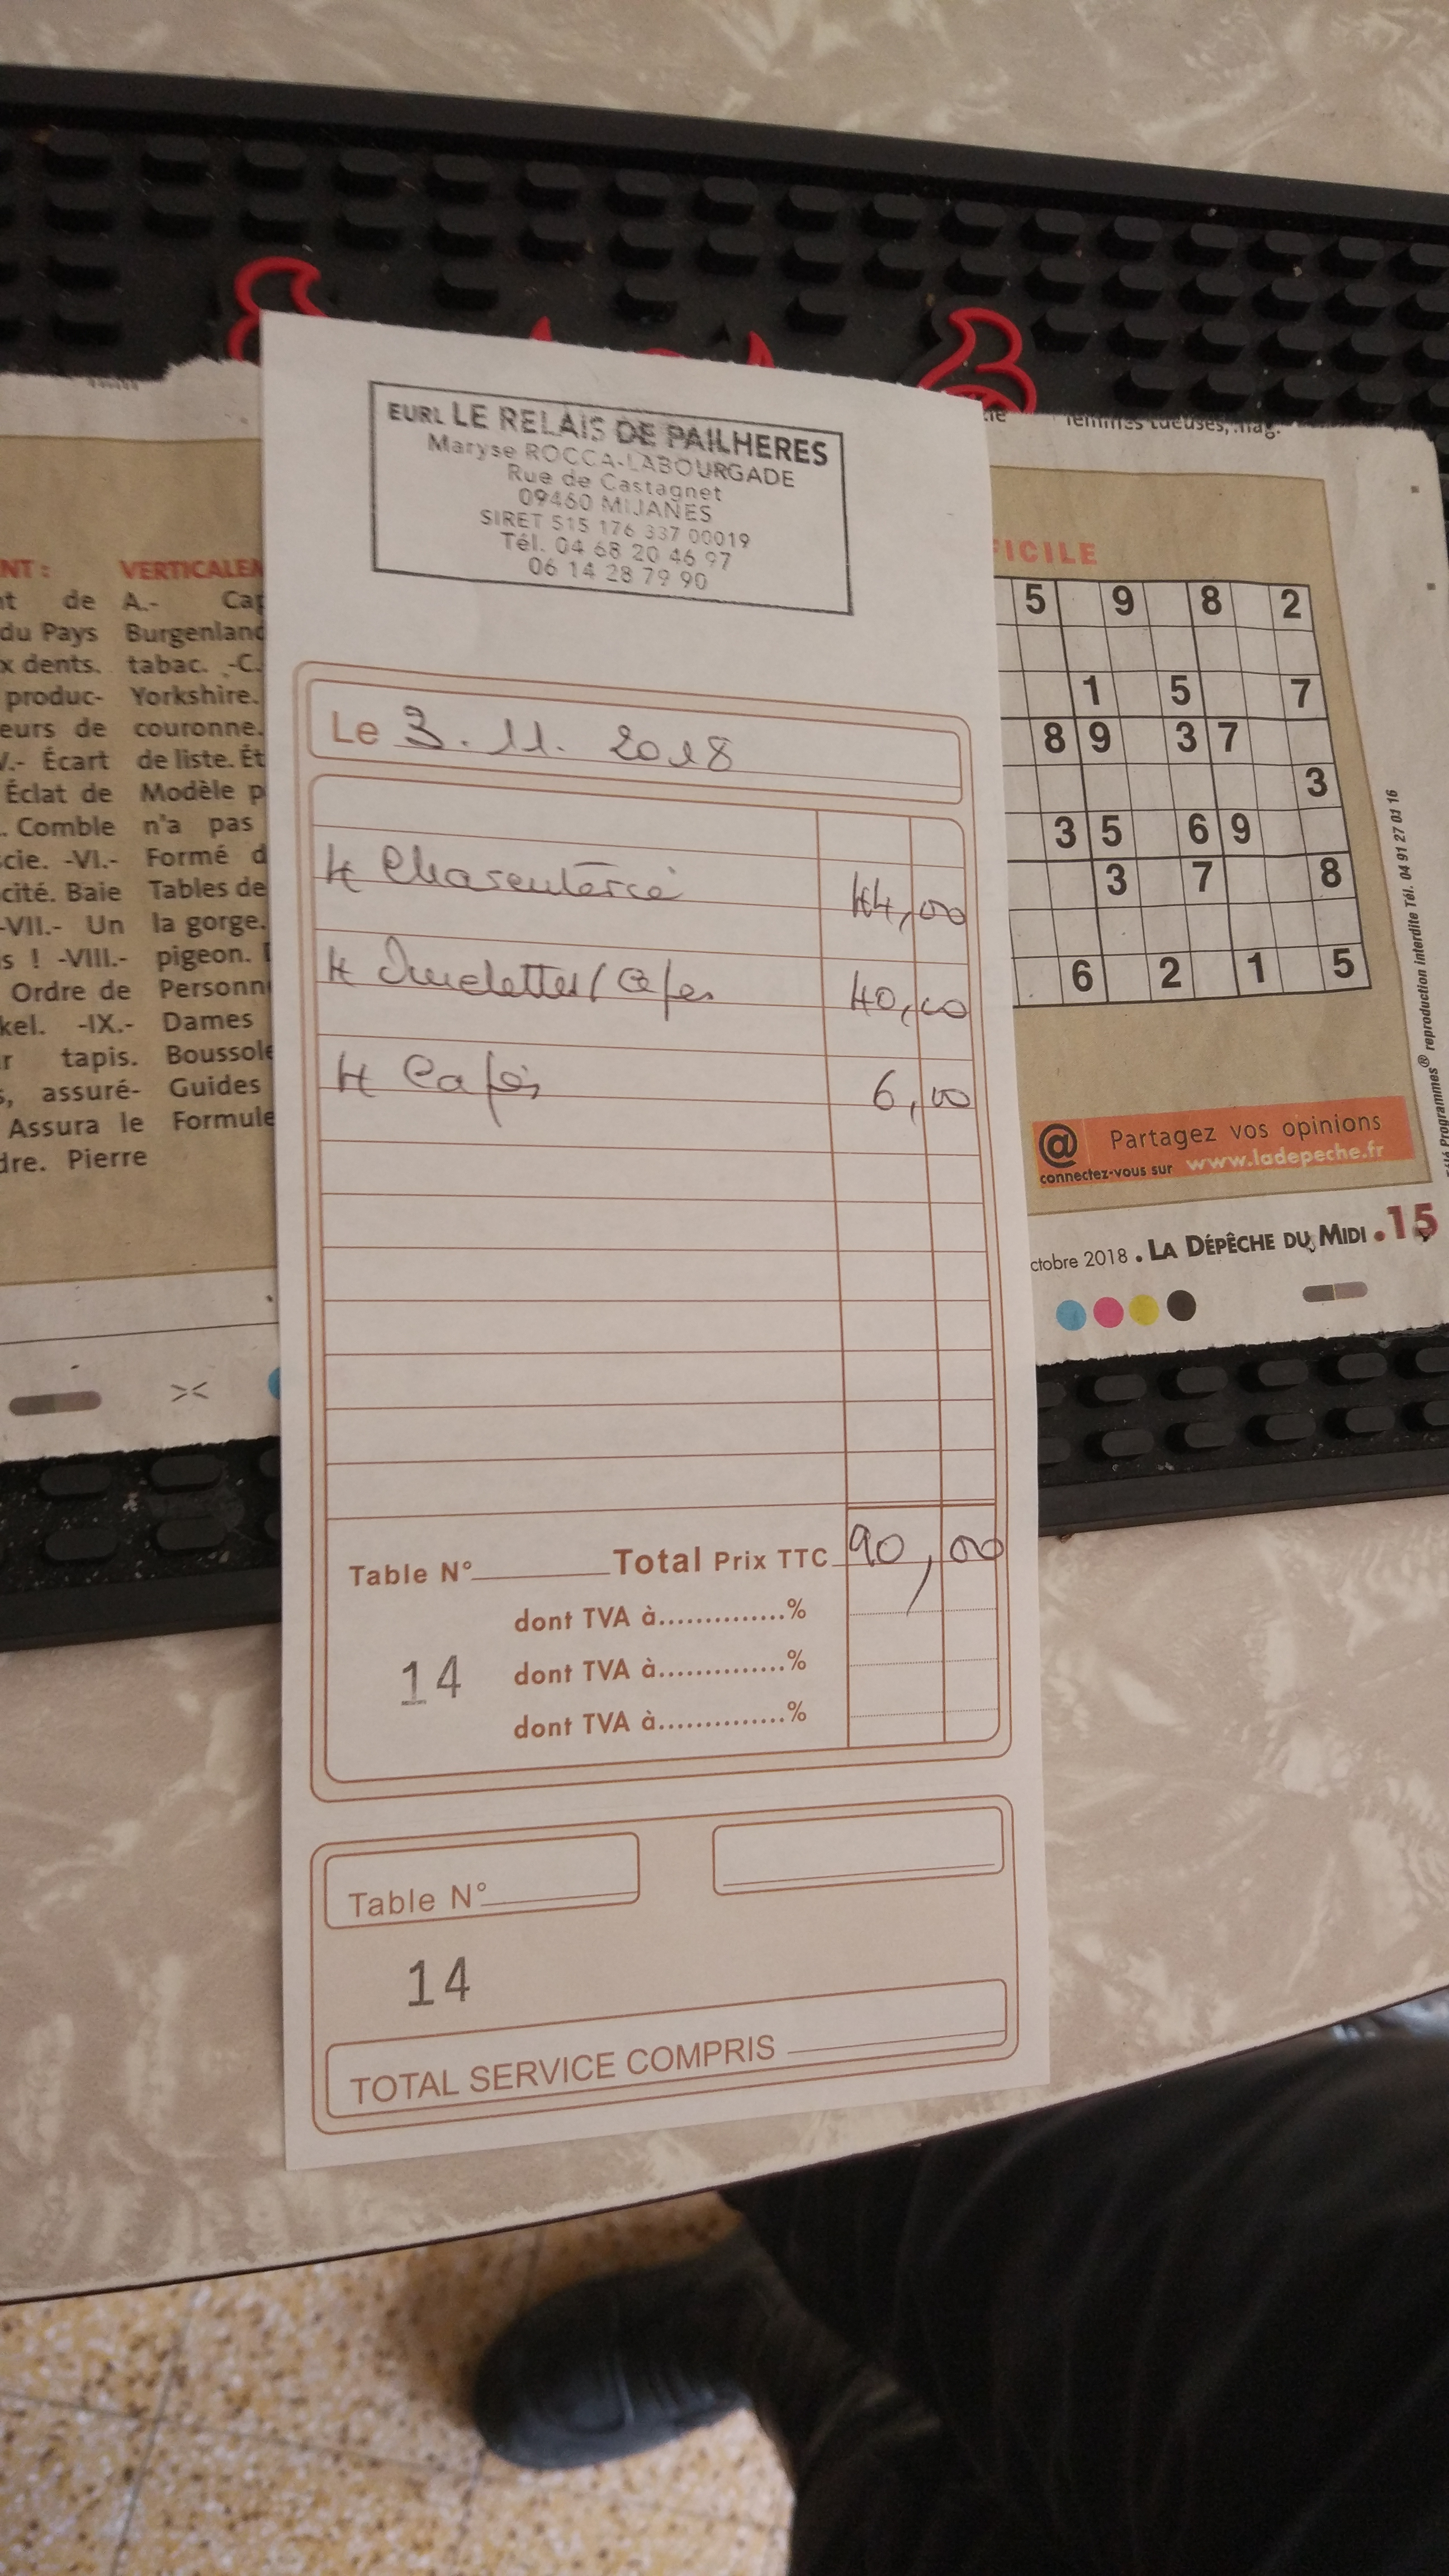 EURL LE RELAIS DE PAILHERES
Maryse ROCCA-LABOURGADE
Rue de Castagnet
09460 MIJANES
SIRET 515 176 337 00019
Tél. 04 68 20 46 97
06 14 28 79 90
Le 3.11.2018
4 Charcuterie 44,00
4 Omelettes/Cèpes 40,00
4 Cafés 6,00
Table N° Total Prix TTC 90,00
dont TVA à..............%
14 dont TVA à..............%
dont TVA à..............%
Table N°
14
TOTAL SERVICE COMPRIS
NT :
de
du Pays
x dents.
produc-
eurs de
V.- Écart
Éclat de
. Comble
cie. -VI.-
cité. Baie
-VII.- Un
s ! -VIII.-
Ordre de
kel. -IX.-
r tapis.
s, assuré-
Assura le
dre. Pierre
VERTICALEM
A.- Cap
Burgenland
tabac. -C.
Yorkshire.
couronne.
de liste. Ét
Modèle p
n'a pas
Formé d
Tables de
la gorge.
pigeon.
Personn
Dames
Boussole
Guides
Formule
femmes tueuses,
FICILE
5 9 8 2
1 5 7
8 9 3 7
3
3 5 6 9
3 7 8
6 2 1 5
Télé Programmes® reproduction interdite Tél. 04 91 27 01 16
@ Partagez vos opinions
connectez-vous sur www.ladepeche.fr
ctobre 2018 . LA DÉPÊCHE DU MIDI .15